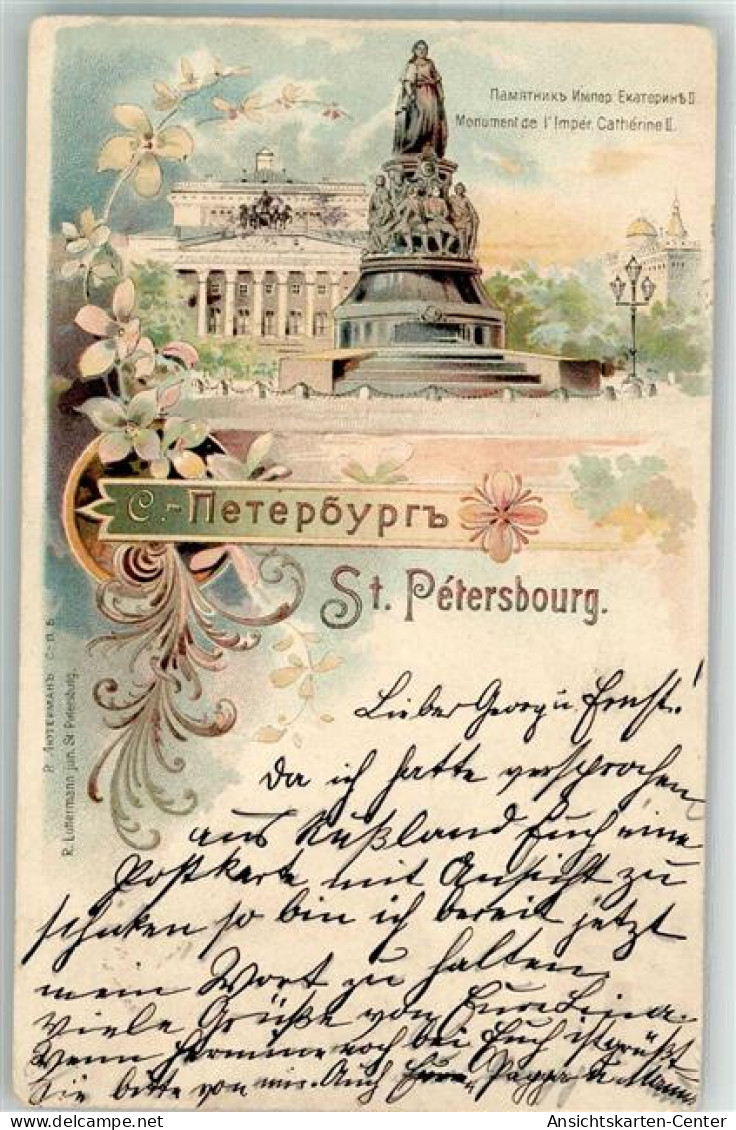 Памятникъ Импер. Екатеринѣ II.
Monument de l'Impér. Cathérine II.
С.-Петербургъ
St. Pétersbourg.
Р. Лютерманъ С.-П.Б.
R. Lüttermann jun. St. Petersburg.
Lieber Georg u Ernst!
Da ich hatte versprochen
aus Rußland Euch eine
Postkarte mit Ansicht zu
schiken so bin ich bereit jetzt
mein Wort zu halten
Viele Grüße von Eure Lina.
Wenn Hermine noch bei Euch ist grüßt
Sie bitte von mir. Auch Pappa u Mama
Ansichtskarten-Center